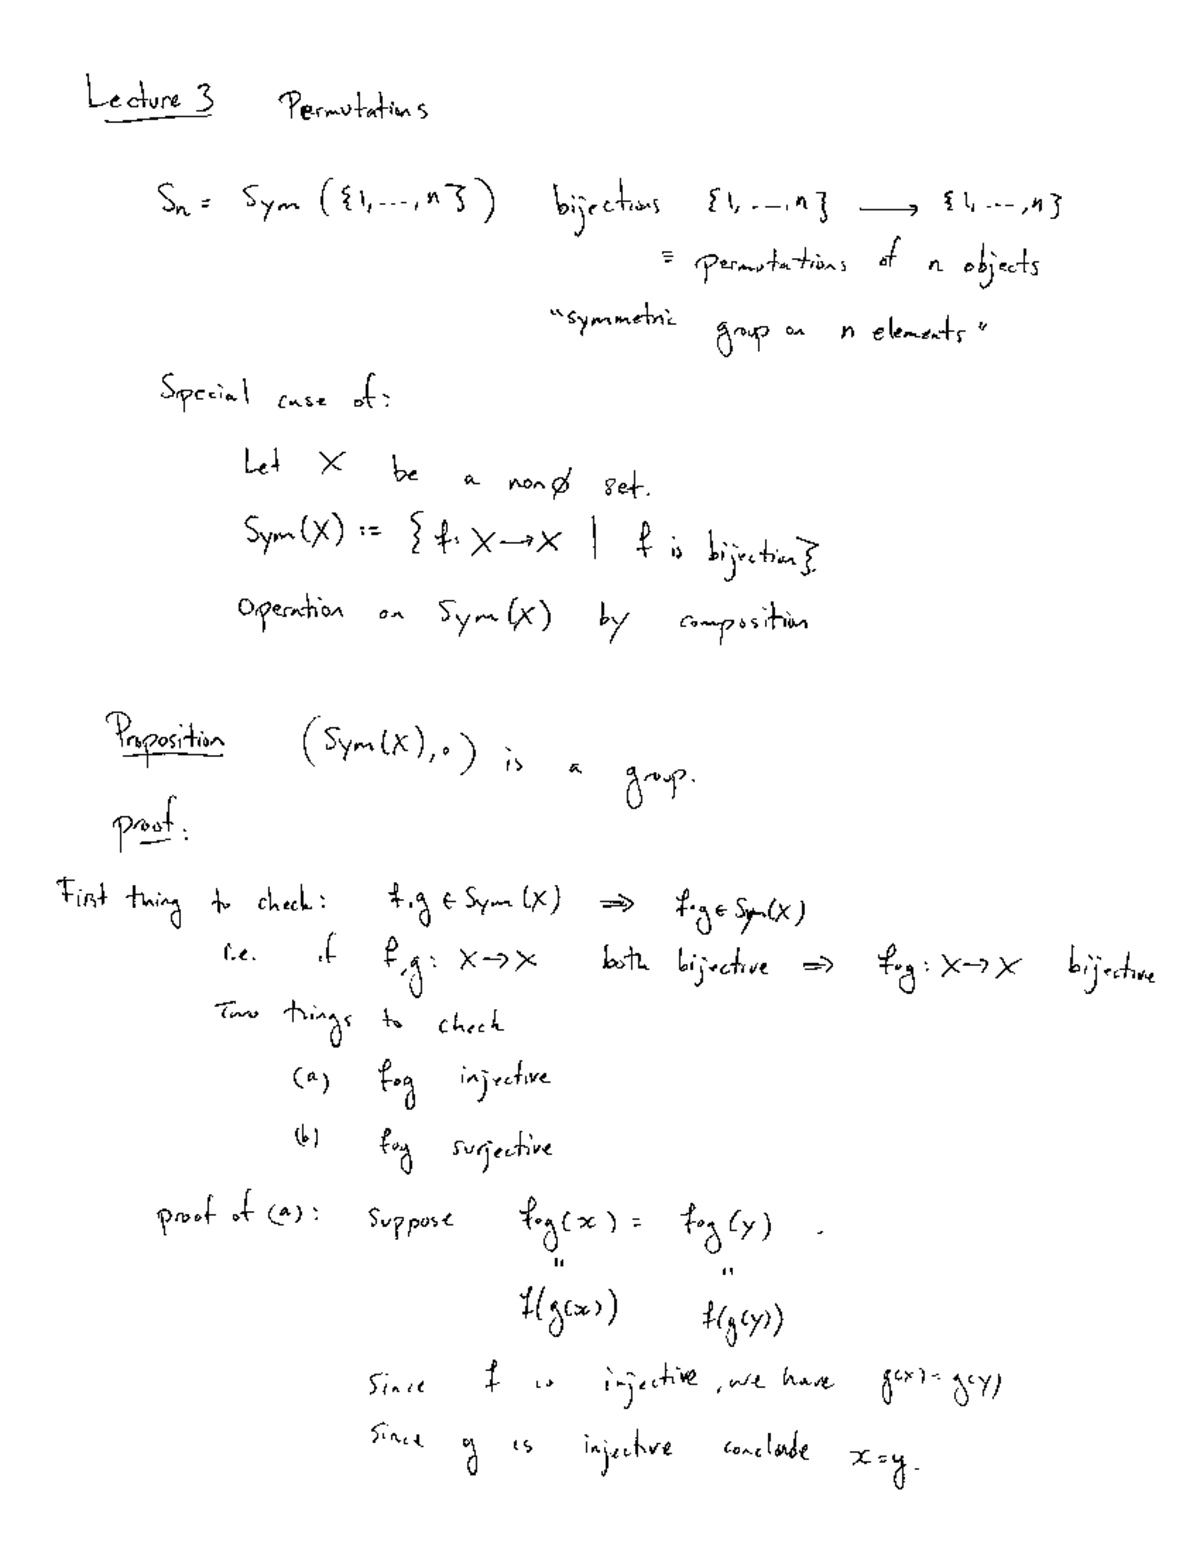 Lecture 3 Permutations
Sₙ = Sym ({1,...,n}) bijections {1,...,n} ⟶ {1,...,n}
≡ permutations of n objects
"symmetric group on n elements"
Special case of:
Let X be a non∅ set.
Sym(X) := {f: X→X | f is bijection}.
Operation on Sym(X) by composition
Proposition (Sym(X),∘) is a group.
proof:
First thing to check: f,g ∈ Sym(X) ⇒ f∘g ∈ Sym(X)
i.e. if f,g: X→X both bijective ⇒ f∘g: X→X bijective
Two things to check
(a) f∘g injective
(b) f∘g surjective
proof of (a): Suppose f∘g(x) = f∘g(y) .
" "
f(g(x)) f(g(y))
Since f is injective, we have g(x)=g(y)
Since g is injective conclude x=y.